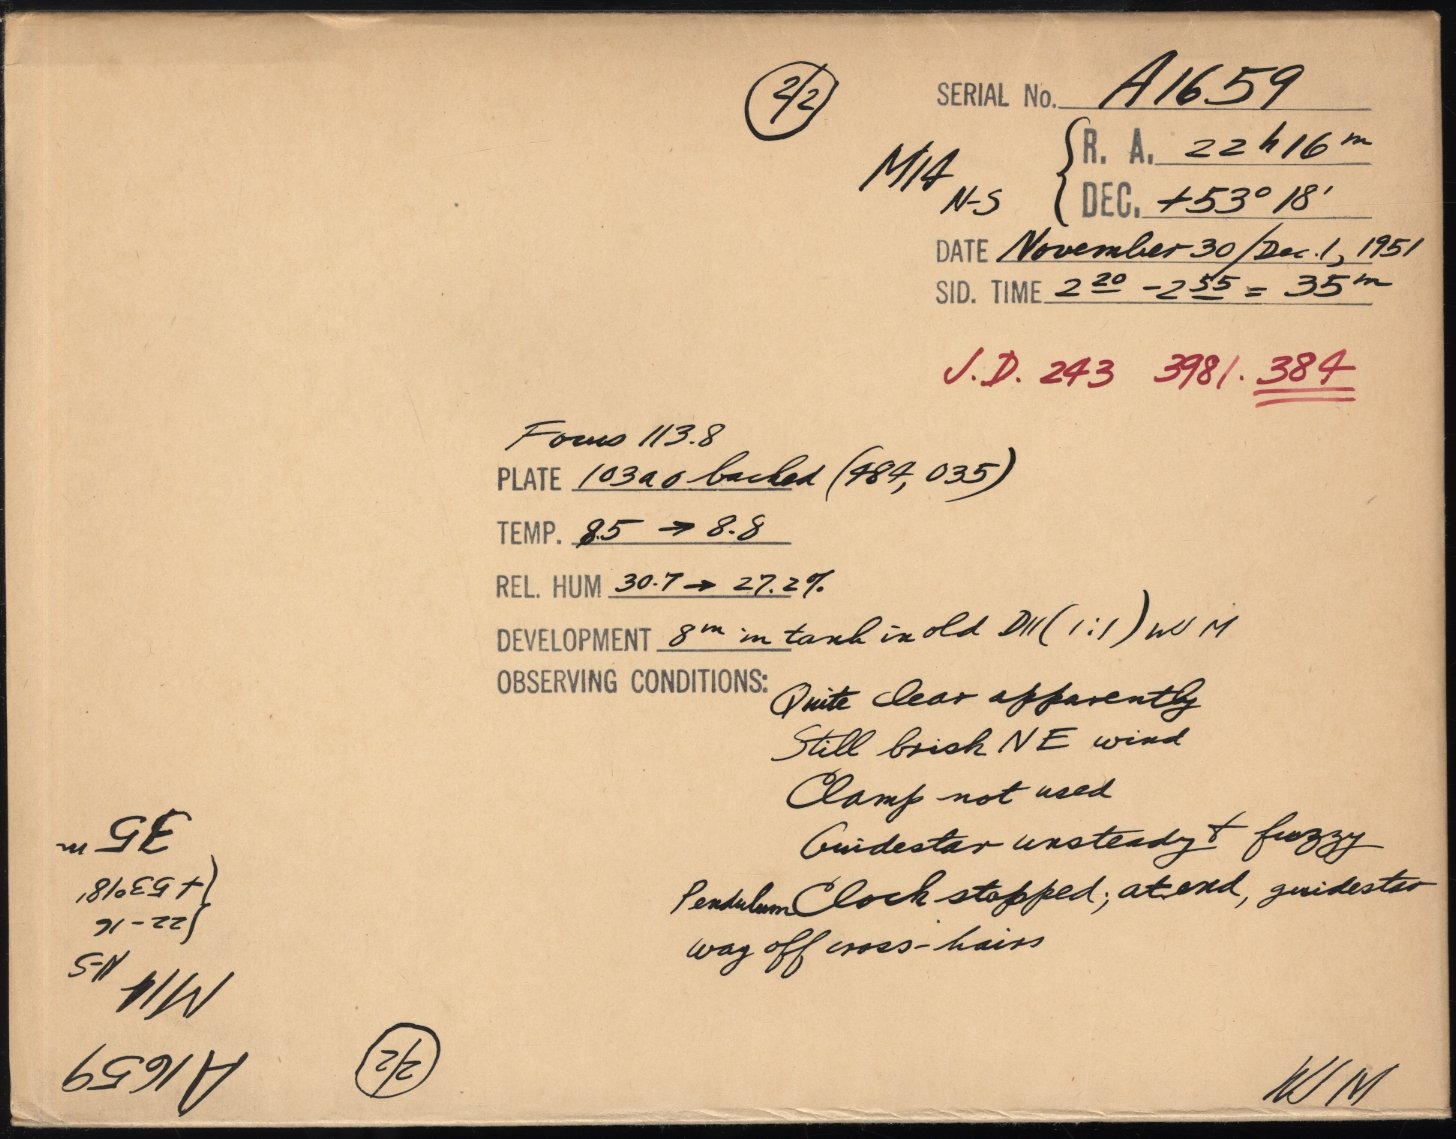 2/2
SERIAL No. A1659
M14 N-S
R. A. 22h16m
DEC. +53° 18'
DATE November 30/Dec. 1, 1951
SID. TIME 2 20 - 2 55 = 35m
J.D. 243 3981.384
Focus 113.8
PLATE 103a o backed (484, 035)
TEMP. 8.5 → 8.8
REL. HUM 30.7 → 27.2%
DEVELOPMENT 8m in tank in old D11 (1:1) WW M
OBSERVING CONDITIONS:
Quite clear apparently
Still brisk NE wind
Clamp not used
Guidestar unsteady & fuzzy
Pendulum Clock stopped; at end, guidestar
way off cross-hairs
WW M
A1659
M14 N-S
22-16
+53°18'
35m
2/2